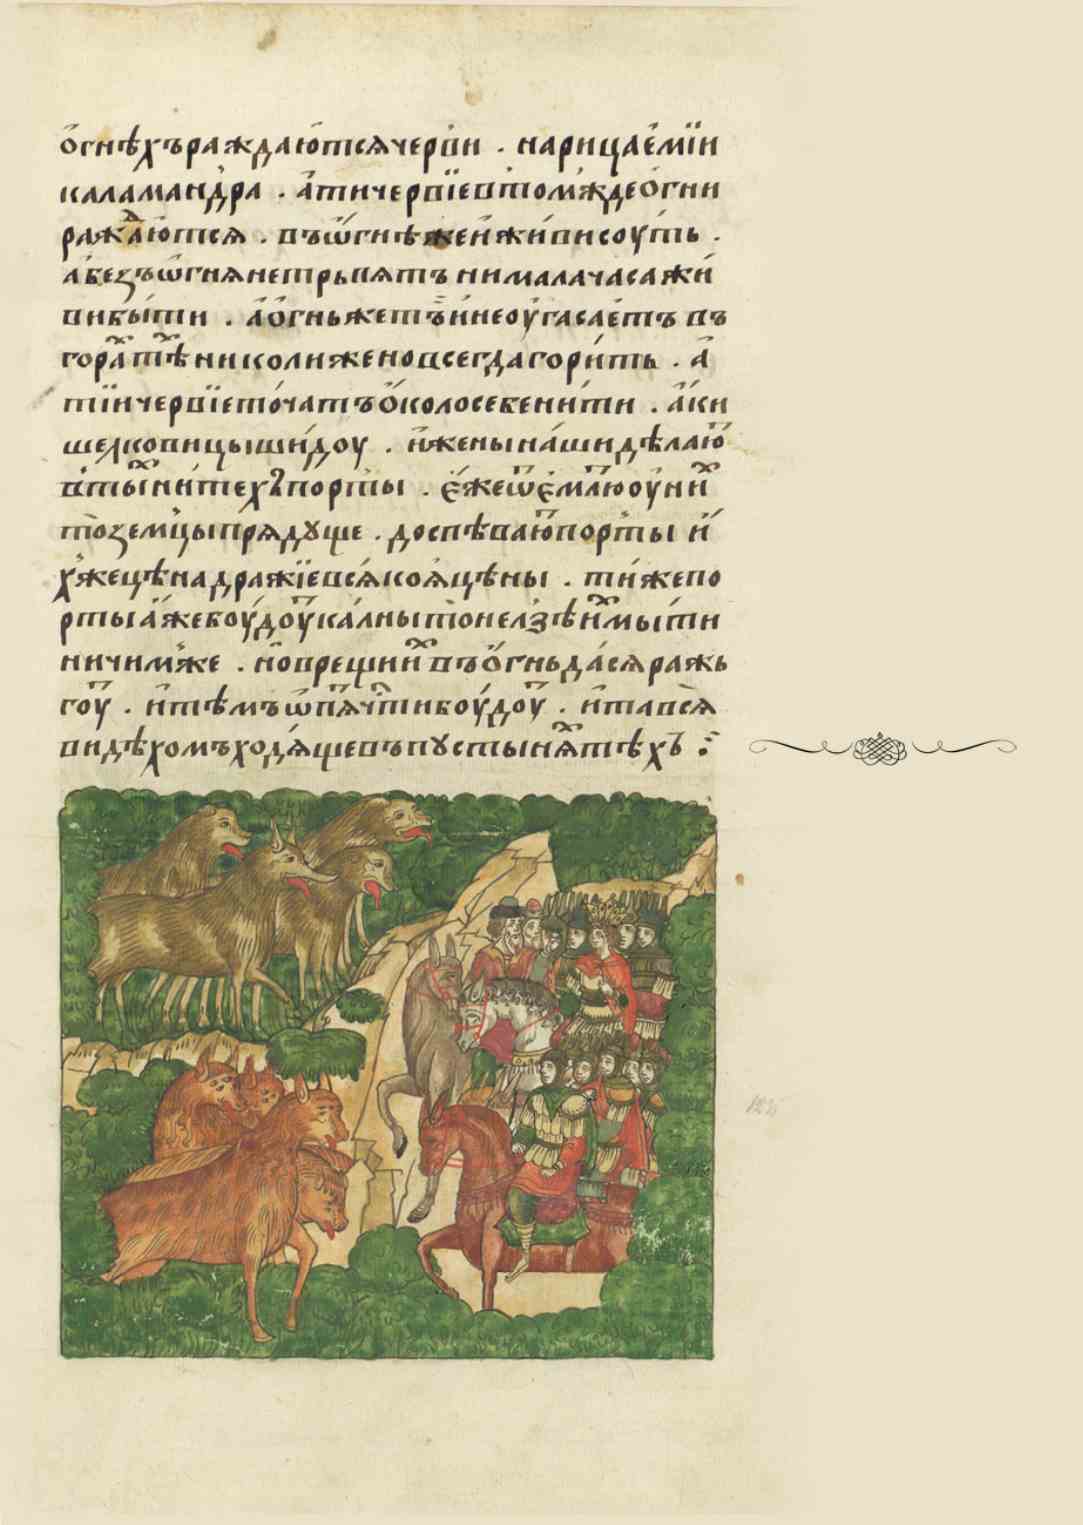 ѻ҆гнѣхъ раждаю́тсѧ черви . нарицае́мїи
каламандра . а҆ ти червїе в томже ѻ҆гни
ража́ютсѧ . въ ѡ҆гнѣ же и҆ жи́ви соу́ть .
а без ъѡгнѧ не трьпѧтъ ни мала часа жи́
ви бы́ти . а҆ ѻ҆гнь же тъи не оугасае́тъ въ
гора́х тѣх николи же но всегда гори́ть . а҆
тїи черви́е то́чатъ ѻ҆коло себе ни́ти . а҆ки
шелковицы и́доу . и҆ жены на́ши дѣлаю́т
в ты́х ни́тех порты . є҆же ѿ є҆млю оу ни́х
тоземцы прѧдꙋще . доспѣваю́т порты и҆
х же цѣна дражїе всѧ́коѧ цѣны . ти́ же по
рты а҆ же боу́доут ка́лны то нелзѣ и҆х мы́ти
ничим же . но врещи и҆х въ ѻ҆гнь да сѧ ражь
гоу́т . и҆ тѣмъ ѡпѧ́т чи́сти боу́доут . и҆ та всѧ̀
видѣхомъ ходѧ́ще въ пꙋсты́нѧх тѣ́хъ :·